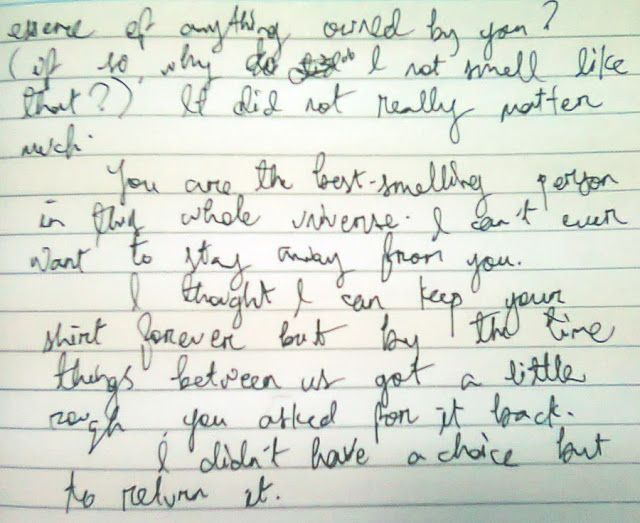 essence of anything owned by you?
(if so, why do I not smell like
that?) It did not really matter
much.
You are the best-smelling person
in this whole universe. I can't even
want to stay away from you.
I thought I can keep your
shirt forever but by the time
things between us got a little
rough, you asked for it back.
I didn't have a choice but
to return it.